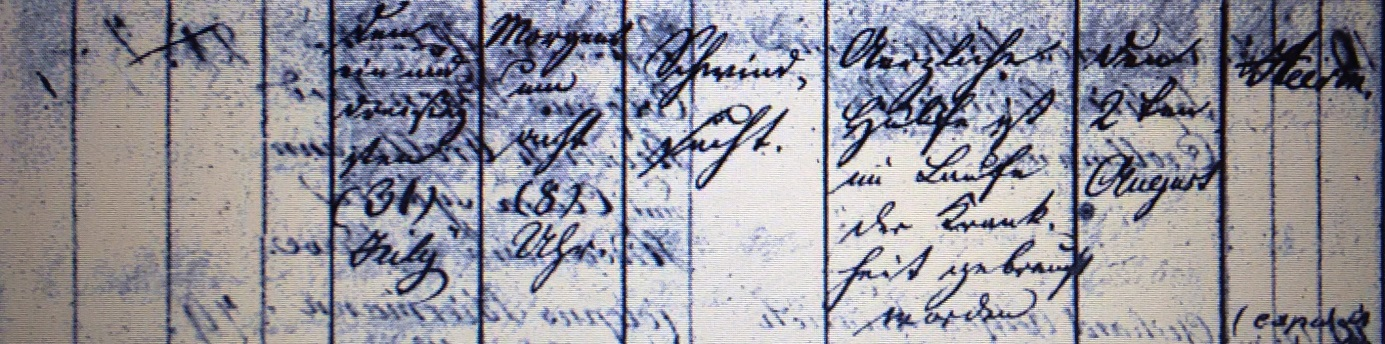 Den
ein und
dreißig
sten
(31)
July
Morgens
um
acht
(8)
Uhr.
Schwind,
sucht.
Aerzliche
Hülfe ist
im Laufe
der Krank,
heit gebraucht
worden
den
2 ten
August